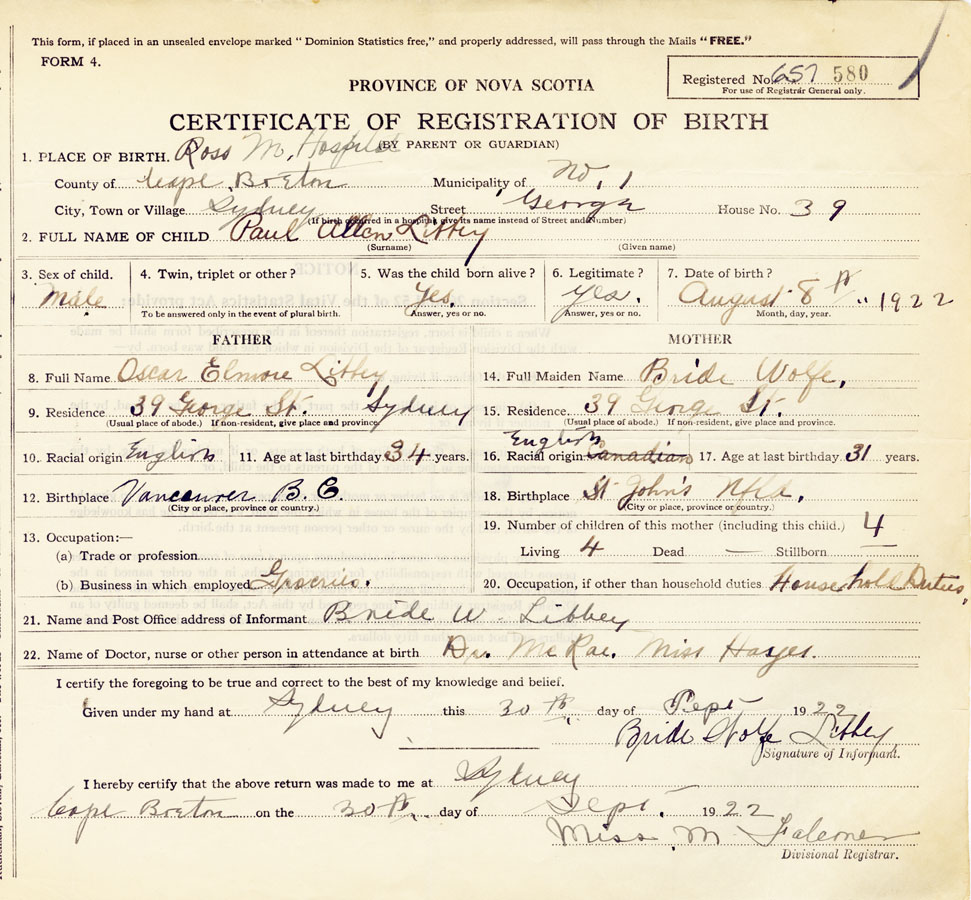 This form, if placed in an unsealed envelope marked “Dominion Statistics free,” and properly addressed, will pass through the Mails “FREE.”
FORM 4.
Registered No. 657 580
For use of Registrar General only.
PROVINCE OF NOVA SCOTIA
CERTIFICATE OF REGISTRATION OF BIRTH
(BY PARENT OR GUARDIAN)
1. PLACE OF BIRTH. Ross M. Hospital
County of Cape Breton Municipality of No. 1
City, Town or Village Sydney Street George House No. 39
(If birth occurred in a hospital, give its name instead of Street and Number)
2. FULL NAME OF CHILD Paul Allen Libbey
(Surname) (Given name)
3. Sex of child. 4. Twin, triplet or other? 5. Was the child born alive? 6. Legitimate? 7. Date of birth?
Male Yes. yes. August 8th " 1922
To be answered only in the event of plural birth. Answer, yes or no. Answer, yes or no. Month, day, year.
FATHER MOTHER
8. Full Name Oscar Elmore Libbey 14. Full Maiden Name Bride Wolfe,
9. Residence 39 George St. Sydney 15. Residence 39 George St.
(Usual place of abode.) If non-resident, give place and province (Usual place of abode.) If non-resident, give place and province.
English
10. Racial origin English 11. Age at last birthday 34 years. 16. Racial origin Canadian 17. Age at last birthday 31 years.
12. Birthplace Vancouver B.C. 18. Birthplace St John's Nfld,
(City or place, province or country.) (City or place, province or country.)
13. Occupation:— 19. Number of children of this mother (including this child.) 4
(a) Trade or profession Living 4 Dead — Stillborn —
(b) Business in which employed Groceries. 20. Occupation, if other than household duties Household Duties,
21. Name and Post Office address of Informant Bride W. Libbey
22. Name of Doctor, nurse or other person in attendance at birth Dr. McRae. Miss Hayes.
I certify the foregoing to be true and correct to the best of my knowledge and belief.
Given under my hand at Sydney this 30th day of Sept 1922
Bride Wolfe Libbey
Signature of Informant.
I hereby certify that the above return was made to me at Sydney
Cape Breton on the 30th day of Sept. 1922
Miss. M. Falconer
Divisional Registrar.